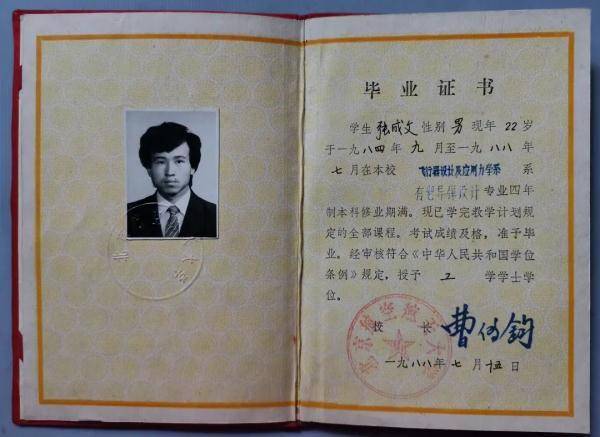 毕业证书
学生 张成文 性别 男 现年 22 岁
于一九八四年 九 月至一九八八年
七月在本校 飞行器设计及应用力学系 系
有翼导弹设计 专业四年
制本科修业期满。现已学完教学计划规
定的全部课程。考试成绩及格，准予毕
业。经审核符合《中华人民共和国学位
条例》规定，授予 工 学学士学
位。
校 长 曹传钧
北京航空航天大学
一九八八年七月十五日